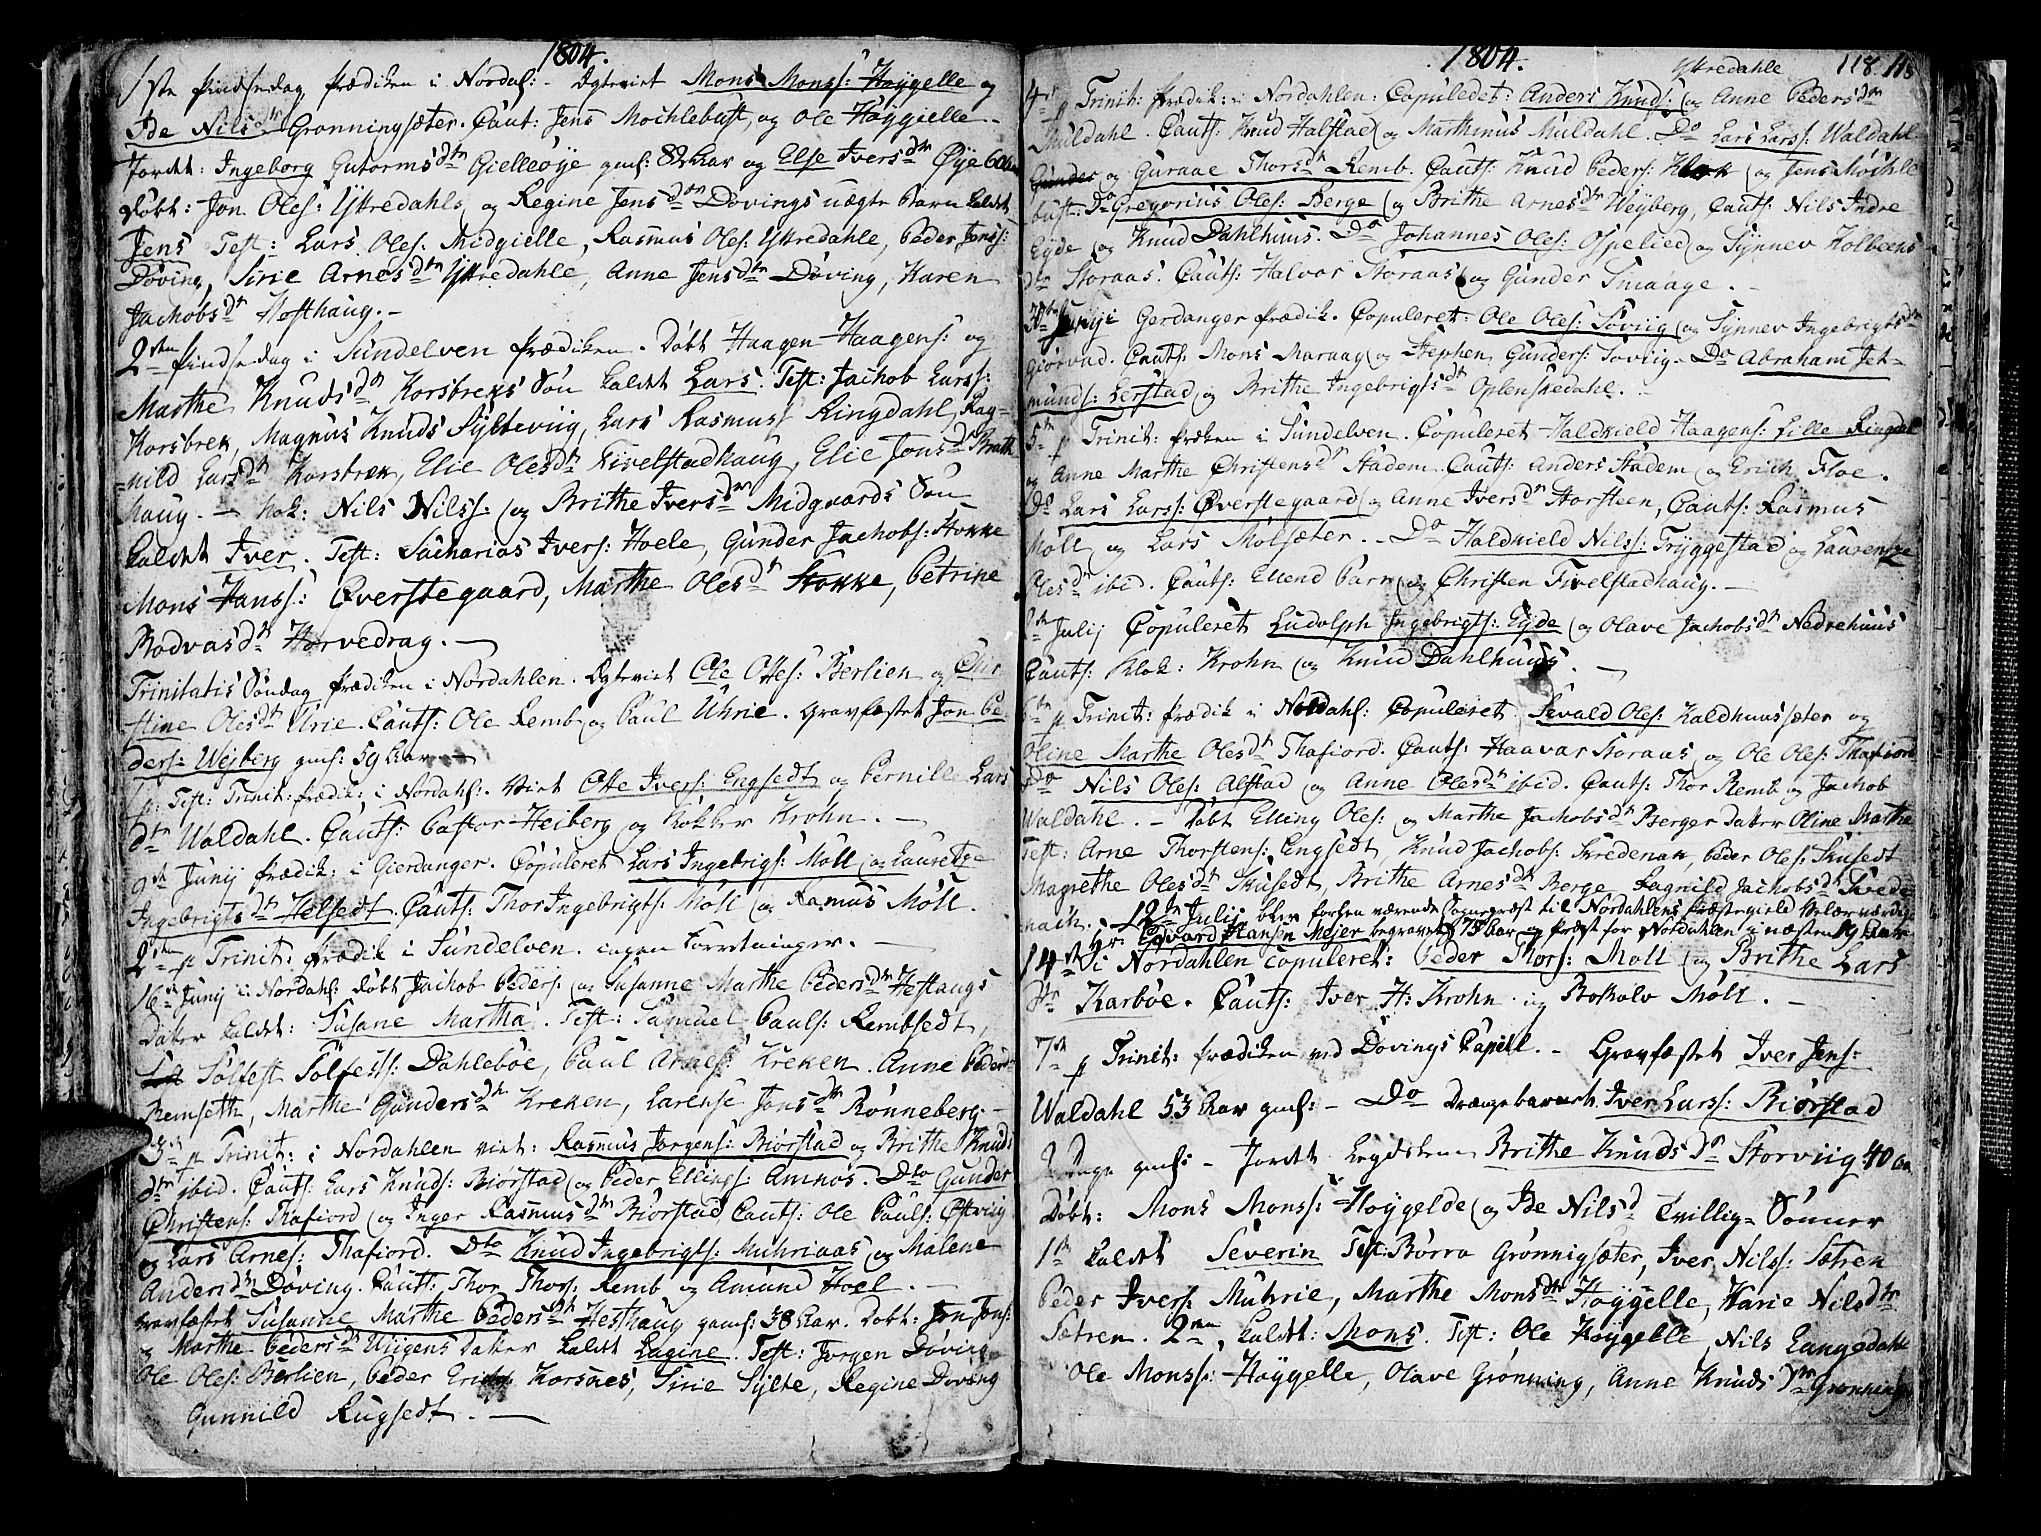 1804.
1ste Pindsedag prædiken i Nordal: - Egteviet Mons Monss: Høyggelle og
Ide Nilsdtr Grønningsæter. Caut: Jens Mochlebust, og Ole Høyggielle -
Jordet: Ingeborg Gutormsdtr Gielleøye gml: 82 Aar og Else Iversdtr Øye 60 Aar
døbt: Jon Oles: Yttredahls og Regine Jensdtr Døvings uægte Barn kaldet
Jens Test: Lars Oles: Midgielle, Rasmus Oles: Yttredahle, Peder Jenss:
Døving, Sirie Arnesdtr Yttredahle, Anne Jensdtr Døving, Karen
Jachobsdtr Hosthaug. -
2den Pindsedag i Sundelven prædiken. Døbt Haagen Haagens: og
Marthe Knudsdtr Korsbreks Søn kaldet Lars. Test: Jachob Larss:
Korsbrek, Magnus Knuds Sylteviig, Lars Rasmuss Ringdahl, Rag=
=nild Larsdtr Korsbrek, Elie Olesdtr Tivelstadhaug, Elie Jonsdtr Bratt
haug. - Nok: Nils Nilss: og Brithe Iversdtr Midgaards Søn
kaldet Iver. Test: Sacharias Ivers: Hoele, Gunder Jachobs: Stokke
Mons Hanss: Øverstegaard, Marthe Olesdtr Stokke, Petrine
Rodvasdtr Horvedrag. -
Trinitatis Søndag prædiken i Nordahlen. Egteviet Ole Ottes: Berlien og Chir
stine Olesdtr Urie. Cauts: Ole Remb og Paul Uhrie. Gravfæstet Jon Pe
ders: Wejberg gml: 59 Aar -
1 p: Fest: Trinit: prædik: i Nordahl:. Viet Otte Ivers: Engsedt og Pernille Lars
dtr Waldahl. Cauts: Pastor Heiberg og Klokker Krohn. -
9de Junij prædik: i Gierdanger. Copuleret Lars Ingebrigs: Møll og Laurentze
Ingebrigtsdtr Helsedt Cauts: Thor Ingebrigts: Møll og Ramus Møll.
2den p Trinit: prædik i Sundelven. ingen Forretninger. -
16de Junij i Nordahl: døbt Jachob Peders: og Susanne Marthe Pedersdtr Hestaugs
Datter kaldet: Susane Martha. Test: Samuel Pauls: Rembsedt,
Solfest Solfestss: Dahlebøe, Paul Arnes: Kreken. Anne Pedersdtr
Remseth, Marthe Gundersdtr Kreken, Larense Jonsdtr Rønneberg -
3die p Trinit: i Nordahlen viet: Rasmus Jørgens: Biørstad og Brithe Knuds
dtr ibid. Cauts: Lars Knuds: Biørstad og Peder Ellings: Amnos. Dto Gunder
Christens: Thafiord og Inger Rasmusdtr Biørstad Cauts: Ole Pauls: Østviig
og Lars Arnes: Thafiord. Dto Knud Ingebrigts: Muhriaas og Malene
Andersdtr Døving. Cauts: Thor Thors: Remb og Amund Hoel. -
Gravfæstet Susanne Marthe Pedersdtr Hesthaug gaml: 38 Aar. Døbt: Jon Jons:
og Marthe Pedersdtr Uriigens Datter kaldet Lagine. Test: Jørgen Døving
Ole Oles: Berlien, Peder Erichs Korsnes, Sirie Sylte, Regine Døving
Gunnild Rugsedt. -
1804.
118. 118
Yttredahle
4de p Trinit: prædik: i Nordahlen: Copuledet: Anders Knuds: og Anne Pedersdtr
Muldahl. Cauts: Knud Halstad og Marthinus Muldahl. Do Lars Larss: Waldahl
og Guraae Thorsdtr Remb. Cauts: Knud Peders: Klok og Jens Mochle
bust. Do Gregorius Oles: Berge og Brithe Arnesdtr Weyberg, Cauts: Nils Indre
Eyde og Knud Dahlhuus. Do Johannes Oles: Ospelied og Synnev Kolbeens
dtr Storaas. Cauts: Halvor Storaas og Gunder Smaage. -
Gerdanger prædik. Copuleret: Ole Oles: Soviig og Synnev Ingebrigtsdtr
Giørvad. Cauts: Mons Maraag og Stephen Gunders: Soviig. Do Abraham Jet-
munds: Lerstad og Brithe Ingebrigsdtr Oplenskedahl. -
5te p Trinit: præken i Sundelven. Copuleret Haldkield Haagens: Lille Ringdal
og Anne Marthe Christensdtr Stadem. Cauts: Anders Stadem og Erich Floe.
Do Lars Larss: Øverstegaard og Anne Iversdtr Storsteen, Cauts: Rasmus
Møll og Lars Molsæter. - Do Haldkield Nilss: Tryggestad og Laurentze
Olesdtr ibid. Cauts: Ellend Barn og Christen Tivelstadhaug. -
Julij Copuleret Ludolph Ingebrigts: Eyde og Olave Jachobsdtr Nedrehuus
Cauts: Klok: Krohn og Knud Dahlhuus. -
6te p Trinit: prædik i Nordahl: Copuleret Sevald Oles: Kaldhuussæter og
Oline Marthe Olesdtr Thafiord. Cauts: Haavar Storaas og Ole Oles: Thafiord
Do Nils Oles: Alstad og Anne Olesdtr ibid. Cauts: Thor Remb og Jachob
Waldahl. - Døbt Elling Oles: og Marthe Jachobsdtr Berges Datter Oline Marthe
Test: Arne Thorstens: Engsedt, Knud Jachobs: Skredenak, Peder Oles: Skusedt
Magrethe Olesdtr Skusedt, Brithe Arnesdtr Berge, Ragnild Jachobsdtr Svede
nach. 12te Julij blev forhen værende Sognepræst til Nordahlens Præstegield Velærværdige
Hr: Edvard Hansen Mejer begravet, 75 Aar og Præst for Nordahlen i næsten 19 Aar
14de i Nordahlen copuleret: Peder Thors: Moll og Brithe Lars
dtr Karbøe. Cauts: Iver H: Krohn og Botolv Møll. -
7de p Trinit: prædiken ved Døvings Capell. - Gravfæstet Iver Jens:
Waldahl 53 Aar gml: - Do Drængebarnet Iver Larss: Biørstad
Dage gml: - Jordet Legdelem Brithe Knudsdtr Storviig 40 Aar
Døbt: Mons Monss: Høygelde og Ide Nilsd Tvillig= Sønner
1te kaldet Severin Test: Børra Grønnigsæter, Iver Nilss: Sætren
Peder Ivers: Muhrie, Marthe Monsdtr Høyggelle, Marie Nilsdtr
Sætren. 2den kaldet: Mons. Test: Ole Høyggelle, Nils Langedahl
Ole Monss: Høyggelle, Olave Grønning, Anne Knudsdtr Grønning